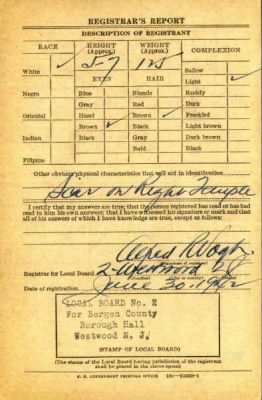 REGISTRAR'S REPORT
DESCRIPTION OF REGISTRANT
RACE HEIGHT (Approx.) WEIGHT (Approx.) COMPLEXION
White ✓ 5-7 125 Sallow
EYES HAIR Light ✓
Negro Blue Blonde Ruddy
Gray Red Dark
Oriental Hazel Brown ✓ Freckled
Brown ✓ Black Light brown
Indian Black Gray Dark brown
Bald Black
Filipino
Other obvious physical characteristics that will aid in identification
Scar on Right Temple
I certify that my answers are true; that the person registered has read or has had
read to him his own answers; that I have witnessed his signature or mark and that
all of his answers of which I have knowledge are true, except as follows:
Alfred
Registrar for Local Board 2 Westwood N.J.
Date of registration June 30, 1942
LOCAL BOARD No. 2
For Bergen County
Borough Hall
Westwood N. J.
(STAMP OF LOCAL BOARD)
(The stamp of the Local Board having jurisdiction of the registrant
shall be placed in the above space)
U. S. GOVERNMENT PRINTING OFFICE